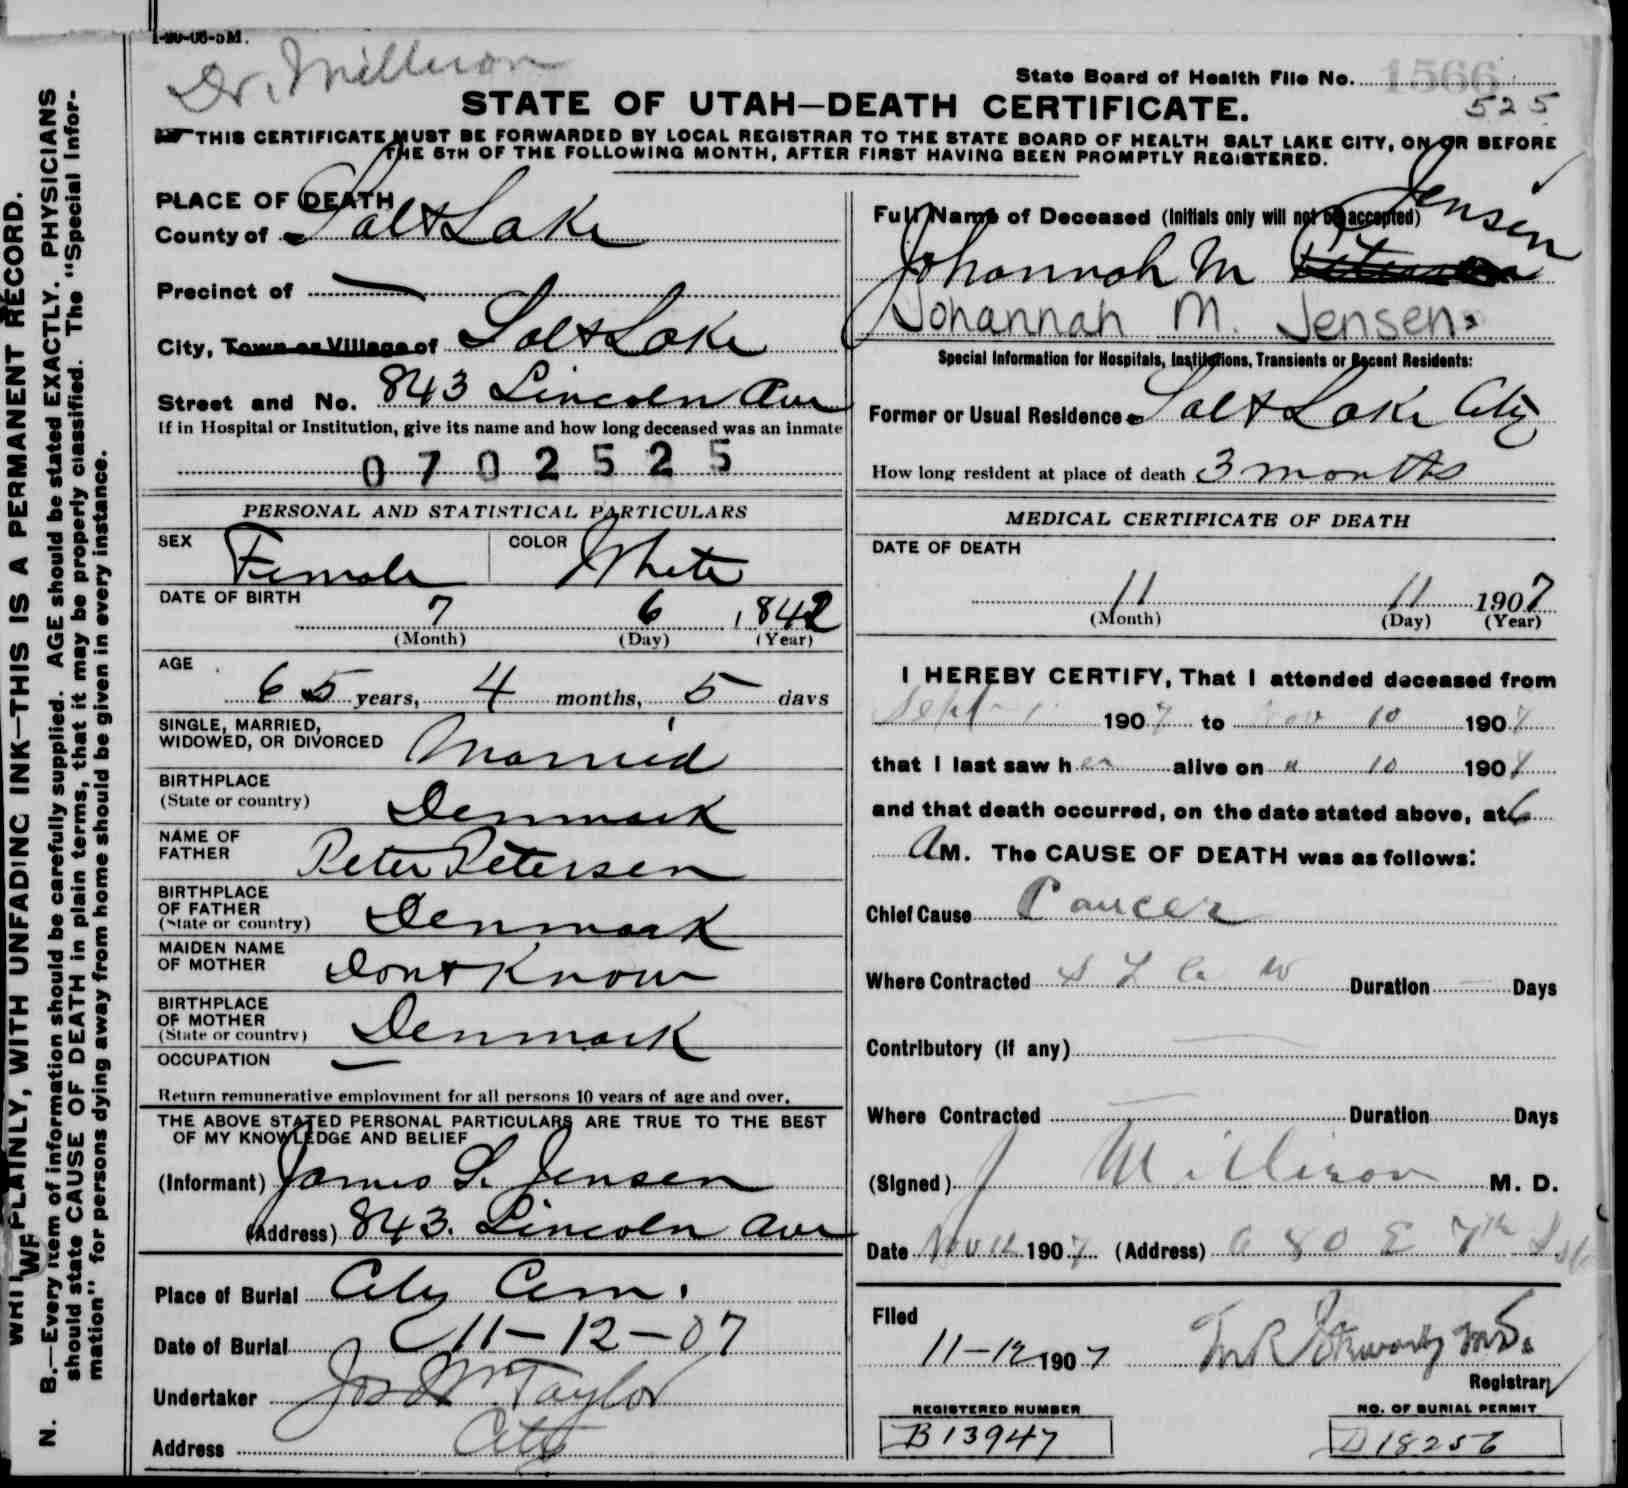 1-20-06-5M.
Dr. Milleron
State Board of Health File No. 1566
525
STATE OF UTAH—DEATH CERTIFICATE.
THIS CERTIFICATE MUST BE FORWARDED BY LOCAL REGISTRAR TO THE STATE BOARD OF HEALTH SALT LAKE CITY, ON OR BEFORE
THE 5TH OF THE FOLLOWING MONTH, AFTER FIRST HAVING BEEN PROMPTLY REGISTERED.
PLACE OF DEATH
County of Salt Lake
Precinct of —
City, Town or Village of Salt Lake
Street and No. 843 Lincoln Ave
If in Hospital or Institution, give its name and how long deceased was an inmate
0702525
PERSONAL AND STATISTICAL PARTICULARS
SEX Female COLOR White
DATE OF BIRTH
7 6 1842
(Month) (Day) (Year)
AGE
65 years, 4 months, 5 days
SINGLE, MARRIED,
WIDOWED, OR DIVORCED Married
BIRTHPLACE
(State or country) Denmark
NAME OF
FATHER Peter Petersen
BIRTHPLACE
OF FATHER
(State or country) Denmark
MAIDEN NAME
OF MOTHER Dont Know
BIRTHPLACE
OF MOTHER
(State or country) Denmark
OCCUPATION —
Return remunerative employment for all persons 10 years of age and over.
THE ABOVE STATED PERSONAL PARTICULARS ARE TRUE TO THE BEST
OF MY KNOWLEDGE AND BELIEF
(Informant) James S. Jensen
(Address) 843. Lincoln Ave
Place of Burial City Cem.
Date of Burial 11-12-07
Undertaker Jos Wm Taylor
Address City
Full Name of Deceased (Initials only will not be accepted)
Jensen
Johannah M
Johannah M. Jensen.
Special Information for Hospitals, Institutions, Transients or Recent Residents:
Former or Usual Residence Salt Lake City
How long resident at place of death 3 months
MEDICAL CERTIFICATE OF DEATH
DATE OF DEATH
11 11 1907
(Month) (Day) (Year)
I HEREBY CERTIFY, That I attended deceased from
Sept 1 1907 to Nov 10 1907
that I last saw her alive on " 10 1907
and that death occurred, on the date stated above, at 6
A M. The CAUSE OF DEATH was as follows:
Chief Cause Cancer
Where Contracted S L C Duration — Days
Contributory (if any) —
Where Contracted — Duration Days
(Signed) J Milleron M. D.
Date Nov 12 1907 (Address) 80 E 7th
Filed
11-12 1907 M.D.
Registrar
REGISTERED NUMBER
B13947
NO. OF BURIAL PERMIT
D18256
WRITE PLAINLY, WITH UNFADING INK—THIS IS A PERMANENT RECORD.
N. B.—Every item of information should be carefully supplied. AGE should be stated EXACTLY. PHYSICIANS
should state CAUSE OF DEATH in plain terms, that it may be properly classified. The "Special Infor-
mation" for persons dying away from home should be given in every instance.